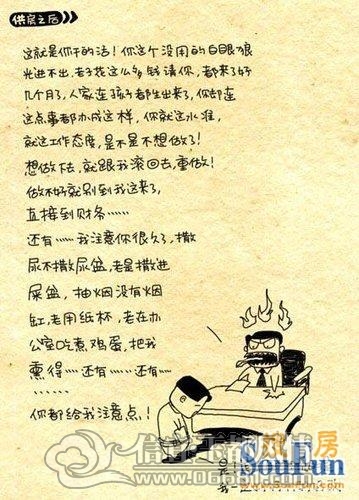 供房之后
这就是你干的活！你这个没用的白眼狼
光进不出，老子花这么多钱请你，都来了好
几个月了，人家连孩子都生出来了，你却连
这点事都办成这样，你就这水准，
就这工作态度，是不是不想做了！
想做下去，就跟我滚回去，重做！
做不好就别到我这来了，
直接到财务……
还有……我注意你很久了，撒
尿不撒尿盆，老是撒进
屎盆，抽烟没有烟
缸，老用纸杯，老在办
公室吃煮鸡蛋，把我
熏得……还有……还有…
……
你都给我注意点！
SouFun